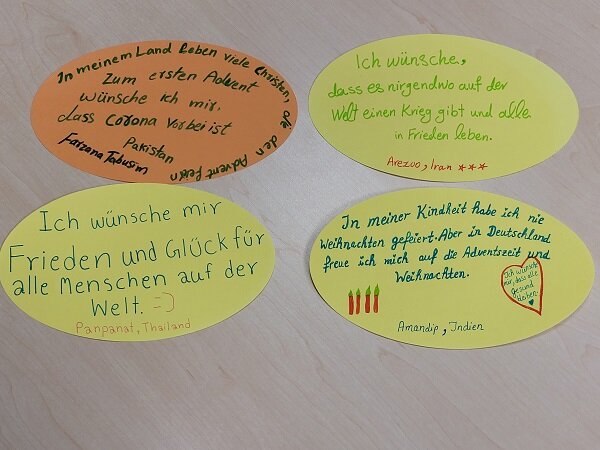 In meinem Land leben viele Christen, die den Advent feiern
Zum ersten Advent
wünsche ich mir,
dass Corona vorbei ist
Pakistan
Farzana Tabusim
Ich wünsche,
dass es nirgendwo auf der
Welt einen Krieg gibt und alle
in Frieden leben.
Arezuo, Iran ***
Ich wünsche mir
Frieden und Glück für
alle Menschen auf der
Welt. =)
Panpanat, Thailand
In meiner Kindheit habe ich nie
Weihnachten gefeiert. Aber in Deutschland
freue ich mich auf die Adventszeit und
Weihnachten.
Ich wünsche
mir, dass alle
gesund
bleiben.
Amandip, Indien